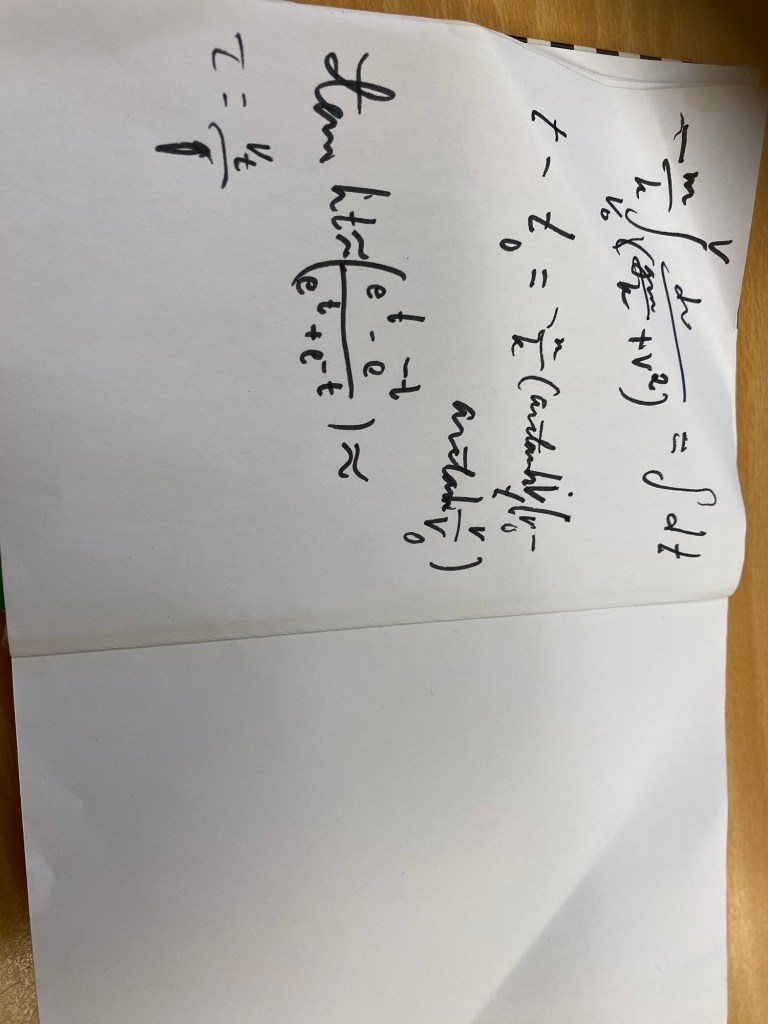 -m/k ∫_{v₀}^{v} dv/(gm/k + v²) = ∫ dt
t - t₀ = -m/k (arctanh v/v₀ -
arctanh v/v₀)
tan ht ≈ (e^t - e^-t / e^t + e^-t) ≈
τ = v_t/